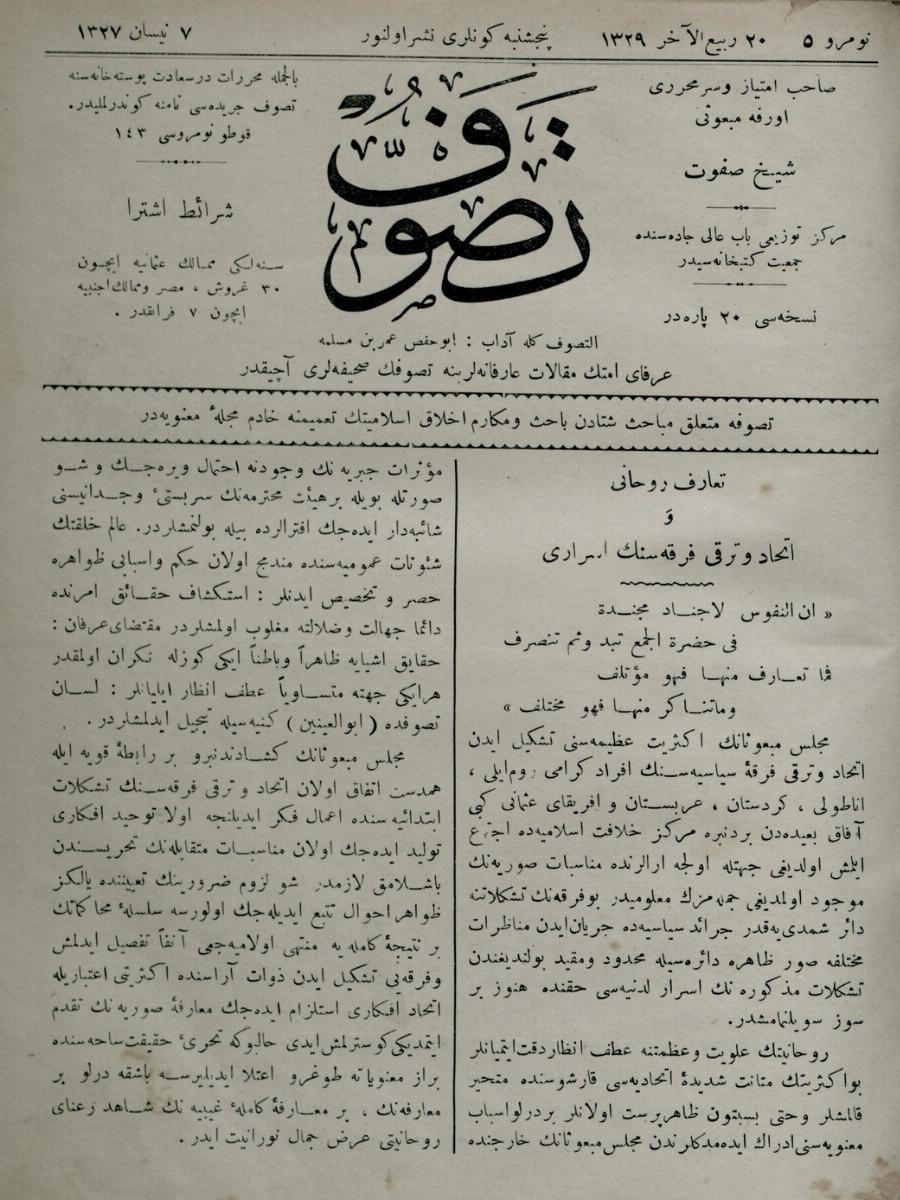 نومرو ٥
٢٠ ربيع الآخر ١٣٢٩
پنجشنبه كونلرى نشر اولنور
٧ نيسان ١٣٢٧
صاحب امتياز وسرمحررى
اورفه مبعوثى
شيخ صفوت
مركز توزيعى باب عالى جاده‌سنده
جمعيت كتبخانه‌سيدر
نسخه‌سى ٢٠ پاره‌در
تصوّف
بالجمله محررات درسعادت پوسته‌خانه‌سنه
تصوف جريده‌سى نامنه كوندرلمليدر.
قوطو نومروسى ١٤٣
شرائط اشترا
سنه‌لكى ممالك عثمانيه ايچون
٣٠ غروش ، مصر وممالك اجنبيه
ايچون ٧ فرانقدر .
التصوف كله آداب : ابوحفص عمر بن مسلمه
عرفاى امتك مقالات عارفانه‌لرينه تصوفك صحيفه‌لرى آچيقدر
تصوفه متعلق مباحث شتادن باحث ومكارم اخلاق اسلاميتك تعميمنه خادم مجلهٔ معنويه‌در
تعارف روحانى
وَ
اتحاد وترقى فرقه‌سنك اسرارى
« ان النفوس لاجناد مجندة
فى حضرة الجمع تبدو ثم تنصرف
فما تعارف منها فهو مؤتلف
وماتناكر منها فهو مختلف »
مجلس مبعوثانك اكثريت عظيمه‌سنى تشكيل ايدن
اتحاد وترقى فرقهٔ سياسيه‌سنك افراد كرامى روم‌ايلى ،
اناطولى ، كردستان ، عربستان و افريقاى عثمانى كبى
آفاق بعيده‌دن بردنبره مركز خلافت اسلاميه‌ده اجتماع
ايلمش اولديغى جهتله اولجه ارالرنده مناسبات صوريه‌نك
موجود اولمديغى جمله‌مزك معلوميدر بوفرقه‌نك تشكلاتنه
دائر شمدى‌يه‌قدر جرائد سياسيه‌ده جريان‌ايدن مناظرات
مختلفه صور ظاهره دائره‌سيله محدود ومقيد بولنديغندن
تشكلات مذكوره نك اسرار لدنيه‌سى حقنده هنوز بر
سوز سويلنمامشدر.
روحانيتك علويت وعظمتنه عطف انظار دقت ايتميانلر
بواكثريتك متانت شديدهٔ اتحاديه‌سى قارشوسنده متحير
قالمشلر وحتى بسبتون ظاهرپرست اولانلر بردرلو اسباب
معنويه‌سنى ادراك ايده‌مدكلرندن مجلس مبعوثانك خارجنده
مؤثرات جبريه نك وجودنه احتمال ويره‌جك و شو
صورتله بويله برهيئت محترمه‌نك سربستىٔ وجدانيسنى
شائبه‌دار ايده‌جك افترالرده بيله بولنمشلردر. عالم خلقتك
شئونات عموميه‌سنده مندمج اولان حكم واسبابى ظواهره
حصر و تخصيص ايدنلر : استكشاف حقائق امرنده
دائما جهالت وضلالته مغلوب اولمشلردر مقتضاى‌عرفان :
حقايق اشيايه ظاهراً وباطناً ايكى كوزله نكران اولمقدر
هرايكى جهته متساوياً عطف انظار ايليانلر : لسان
تصوفده ( ابوالعينين ) كنيه‌سيله تبجيل ايدلمشلردر .
مجلس مبعوثانك كشادندنبرو بر رابطهٔ قويه ايله
همدست اتفاق اولان اتحاد و ترقى فرقه‌سنك تشكلات
ابتدائيه سنده اعمال فكر ايديلنجه اولا توحيد افكارى
توليد ايده‌جك اولان مناسبات متقابله‌نك تحريسندن
باشلامق لازمدر شو لزوم ضرورينك تعييننده يالكز
ظواهر احوال تتبع ايديله‌جك اولورسه سلسلهٔ محاكماتك
بر نتيجهٔ كامله يه منتهى اولاميه‌جغى آنفاً تفصيل ايدلمش
وفرقه‌يى تشكيل ايدن ذوات آراسنده اكثريتى اعتباريله
اتحاد افكارى استلزام ايده‌جك معارفهٔ صوريه نك تقدم
ايتمديكى كوسترلمش‌ايدى حالبوكه تحرىٔ حقيقت‌ساحه‌سنده
براز معنوياته طوغرو اعتلا ايديليرسه باشقه درلو بر
معارفه‌نك ، بر معارفهٔ كاملهٔ غيبيه نك شاهد رعناى
روحانيتى عرض جمال نورانيت ايدر .